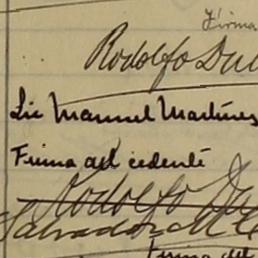 Firma
Rodolfo Du
Lic Manuel Martínez
Firma del cedente
Rodolfo Du
Salvador M
Firma del